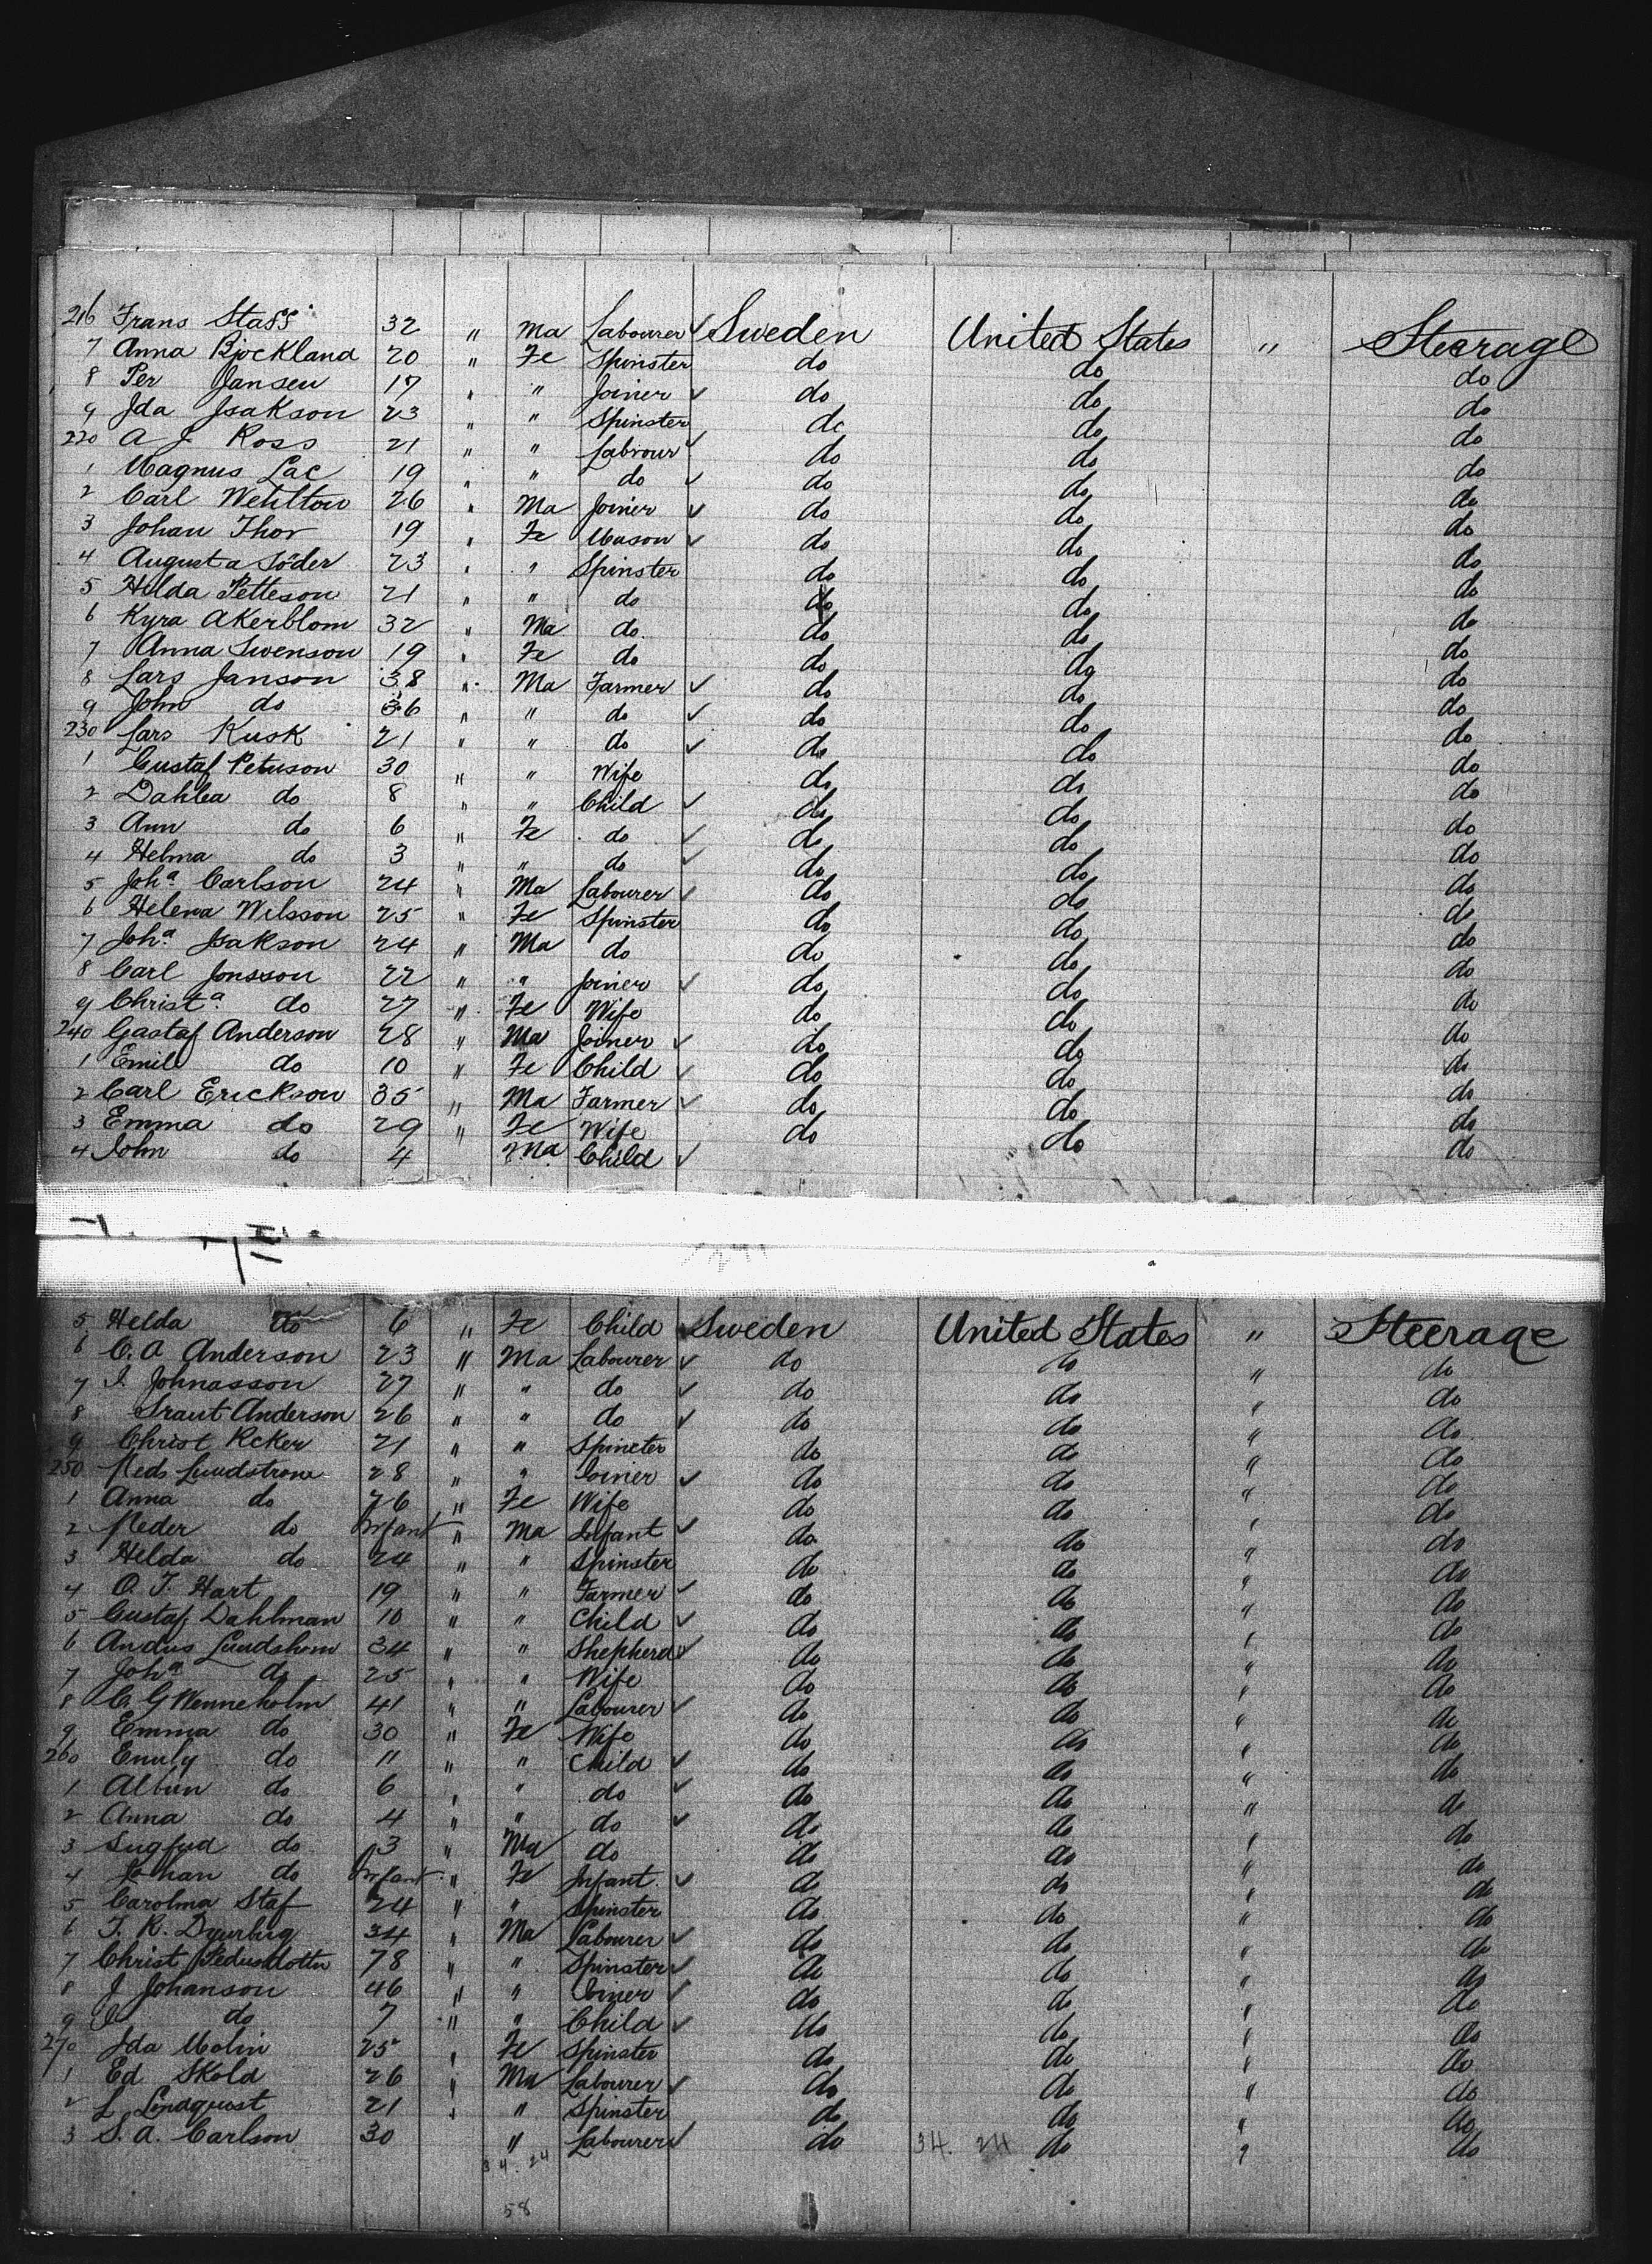 216 Frans Staff 32 " Ma Labourer ✓ Sweden United States " Steerage
7 Anna Bjockland 20 " Fe Spinster do do do
8 Per Jansen 17 " " Joiner ✓ do do do
9 Ida Isakson 23 " " Spinster do do do
220 A J Ross 21 " " Labrour ✓ do do do
1 Magnus Lac 19 " " do ✓ do do do
2 Carl Wehlton 26 " Ma Joiner ✓ do do do
3 Johan Thor 19 " Fe Mason ✓ do do do
4 Augusta Söder 23 " " Spinster do do do
5 Hilda Petteson 21 " " do do do do
6 Kyra Akerblom 32 " Ma do do do do
7 Anna Swenson 19 " Fe do do do do
8 Lars Janson 38 " Ma Farmer ✓ do do do
9 John do 36 " " do ✓ do do do
230 Lars Kusk 21 " " do ✓ do do do
1 Gustaf Petuson 30 " " Wife do do do
2 Dahlea do 8 " " Child ✓ do do do
3 Ann do 6 " Fe do ✓ do do do
4 Helma do 3 " " do ✓ do do do
5 Joha Carlson 24 " Ma Labourer ✓ do do do
6 Helena Wilsson 25 " Fe Spinster do do do
7 Joha Isakson 24 " Ma do do do do
8 Carl Jonsson 22 " " Joiner ✓ do do do
9 Christa do 27 " Fe Wife do do do
240 Gastaf Anderson 28 " Ma Joiner ✓ do do do
1 Emil do 10 " Fe Child ✓ do do do
2 Carl Erickson 35 " Ma Farmer ✓ do do do
3 Emma do 29 " Fe Wife do do do
4 John do 4 Ma Child ✓ do
5 Helda do 6 " Fe Child ✓ Sweden United States " Steerage
6 C. A Anderson 23 " Ma Labourer ✓ do do " do
7 I. Johnasson 27 " " do ✓ do do " do
8 Sraut Anderson 26 " " do ✓ do do " do
9 Christ Rcker 21 " " Spincter do do " do
250 Neds Lundstrom 28 " " Joiner ✓ do do " do
1 Anna do 26 " Fe Wife do do " do
2 Neder do Infant " Ma Infant ✓ do do " do
3 Helda do 24 " " Spinster do do " do
4 O. T. Hart 19 " " Farmer ✓ do do " do
5 Gustaf Dahlman 10 " " Child ✓ do do " do
6 Andus Lundshom 34 " " Shepherd ✓ do do " do
7 Joha do 25 " " Wife do do " do
8 C. G Wenneholm 41 " " Labourer ✓ do do " do
9 Emma do 30 " Fe Wife do do " do
260 Emuly do 11 " " Child ✓ do do " do
1 Albin do 6 " " do ✓ do do " do
2 Anna do 4 " " do ✓ do do " do
3 Sugfud do 3 " Ma do do do " do
4 Johan do Infant " Fe Infant ✓ do do " do
5 Carolma Staf 24 " " Spinster do do " do
6 T. R. Dyurbirg 34 " Ma Labourer ✓ do do " do
7 Christ Pedusdottn 78 " " Spinster ✓ do do " do
8 J Johanson 46 " " Joiner ✓ do do " do
9 I do 7 " " Child ✓ do do " do
270 Ida Molin 25 " Fe Spinster do do " do
1 Ed Skold 26 " Ma Labourer ✓ do do " do
2 L Lindquist 21 " " Spinster do do " do
3 S. A. Carlson 30 " Labourer ✓ do 34. 24 do " do
34. 24
58